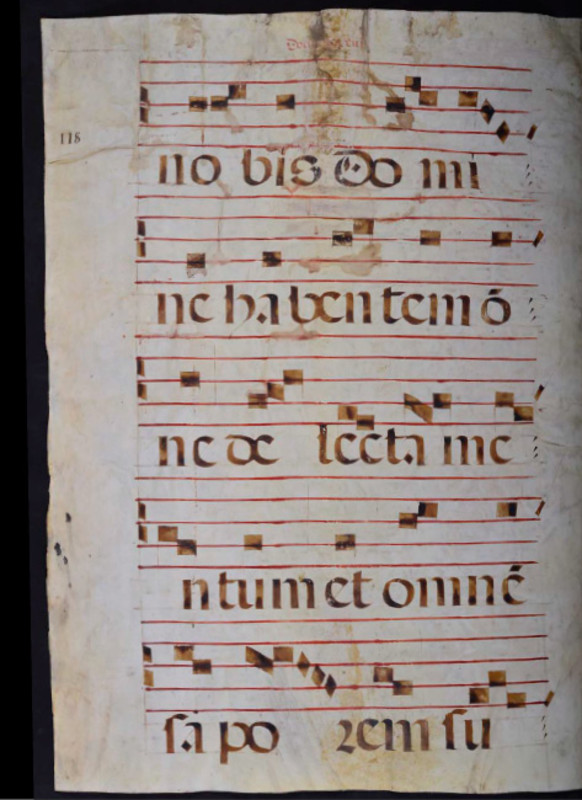 118
no bis Do mi
ne ha ben tem ō
ne de lecta me
ntum et omnē
sa po rem su